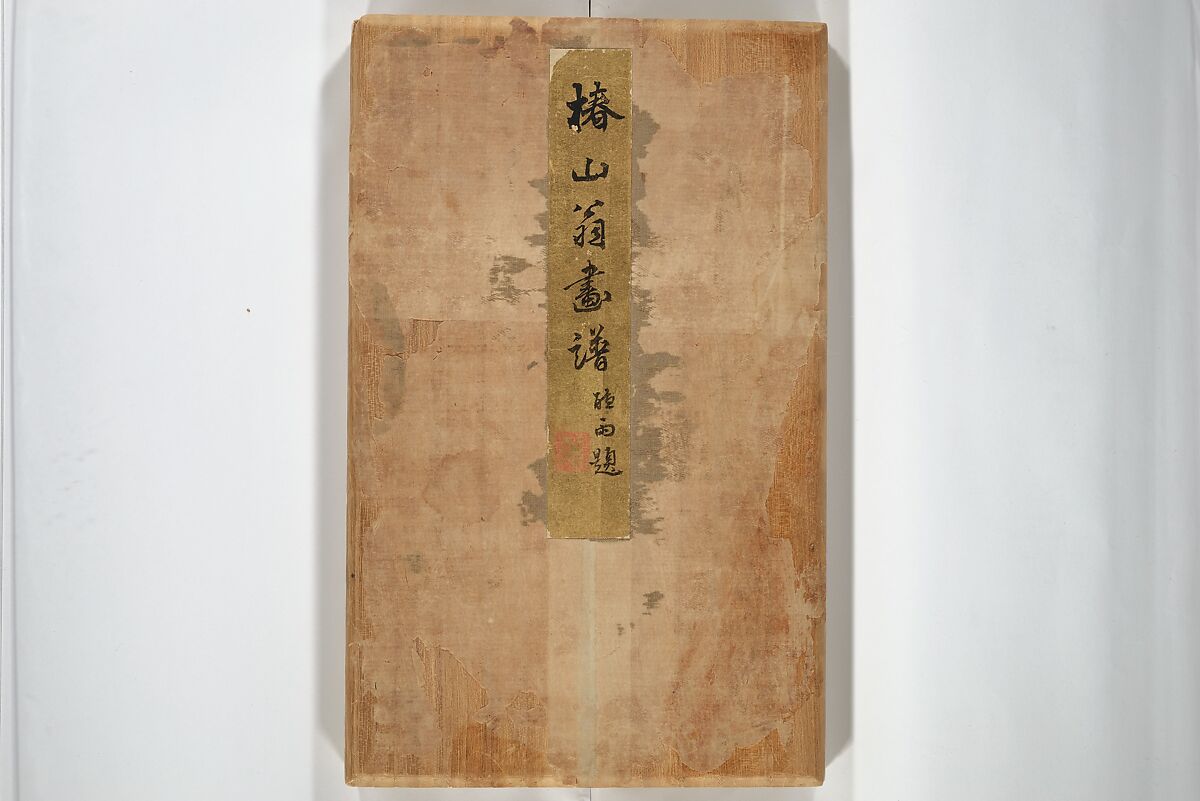 椿山翁畫譜
聴雨題